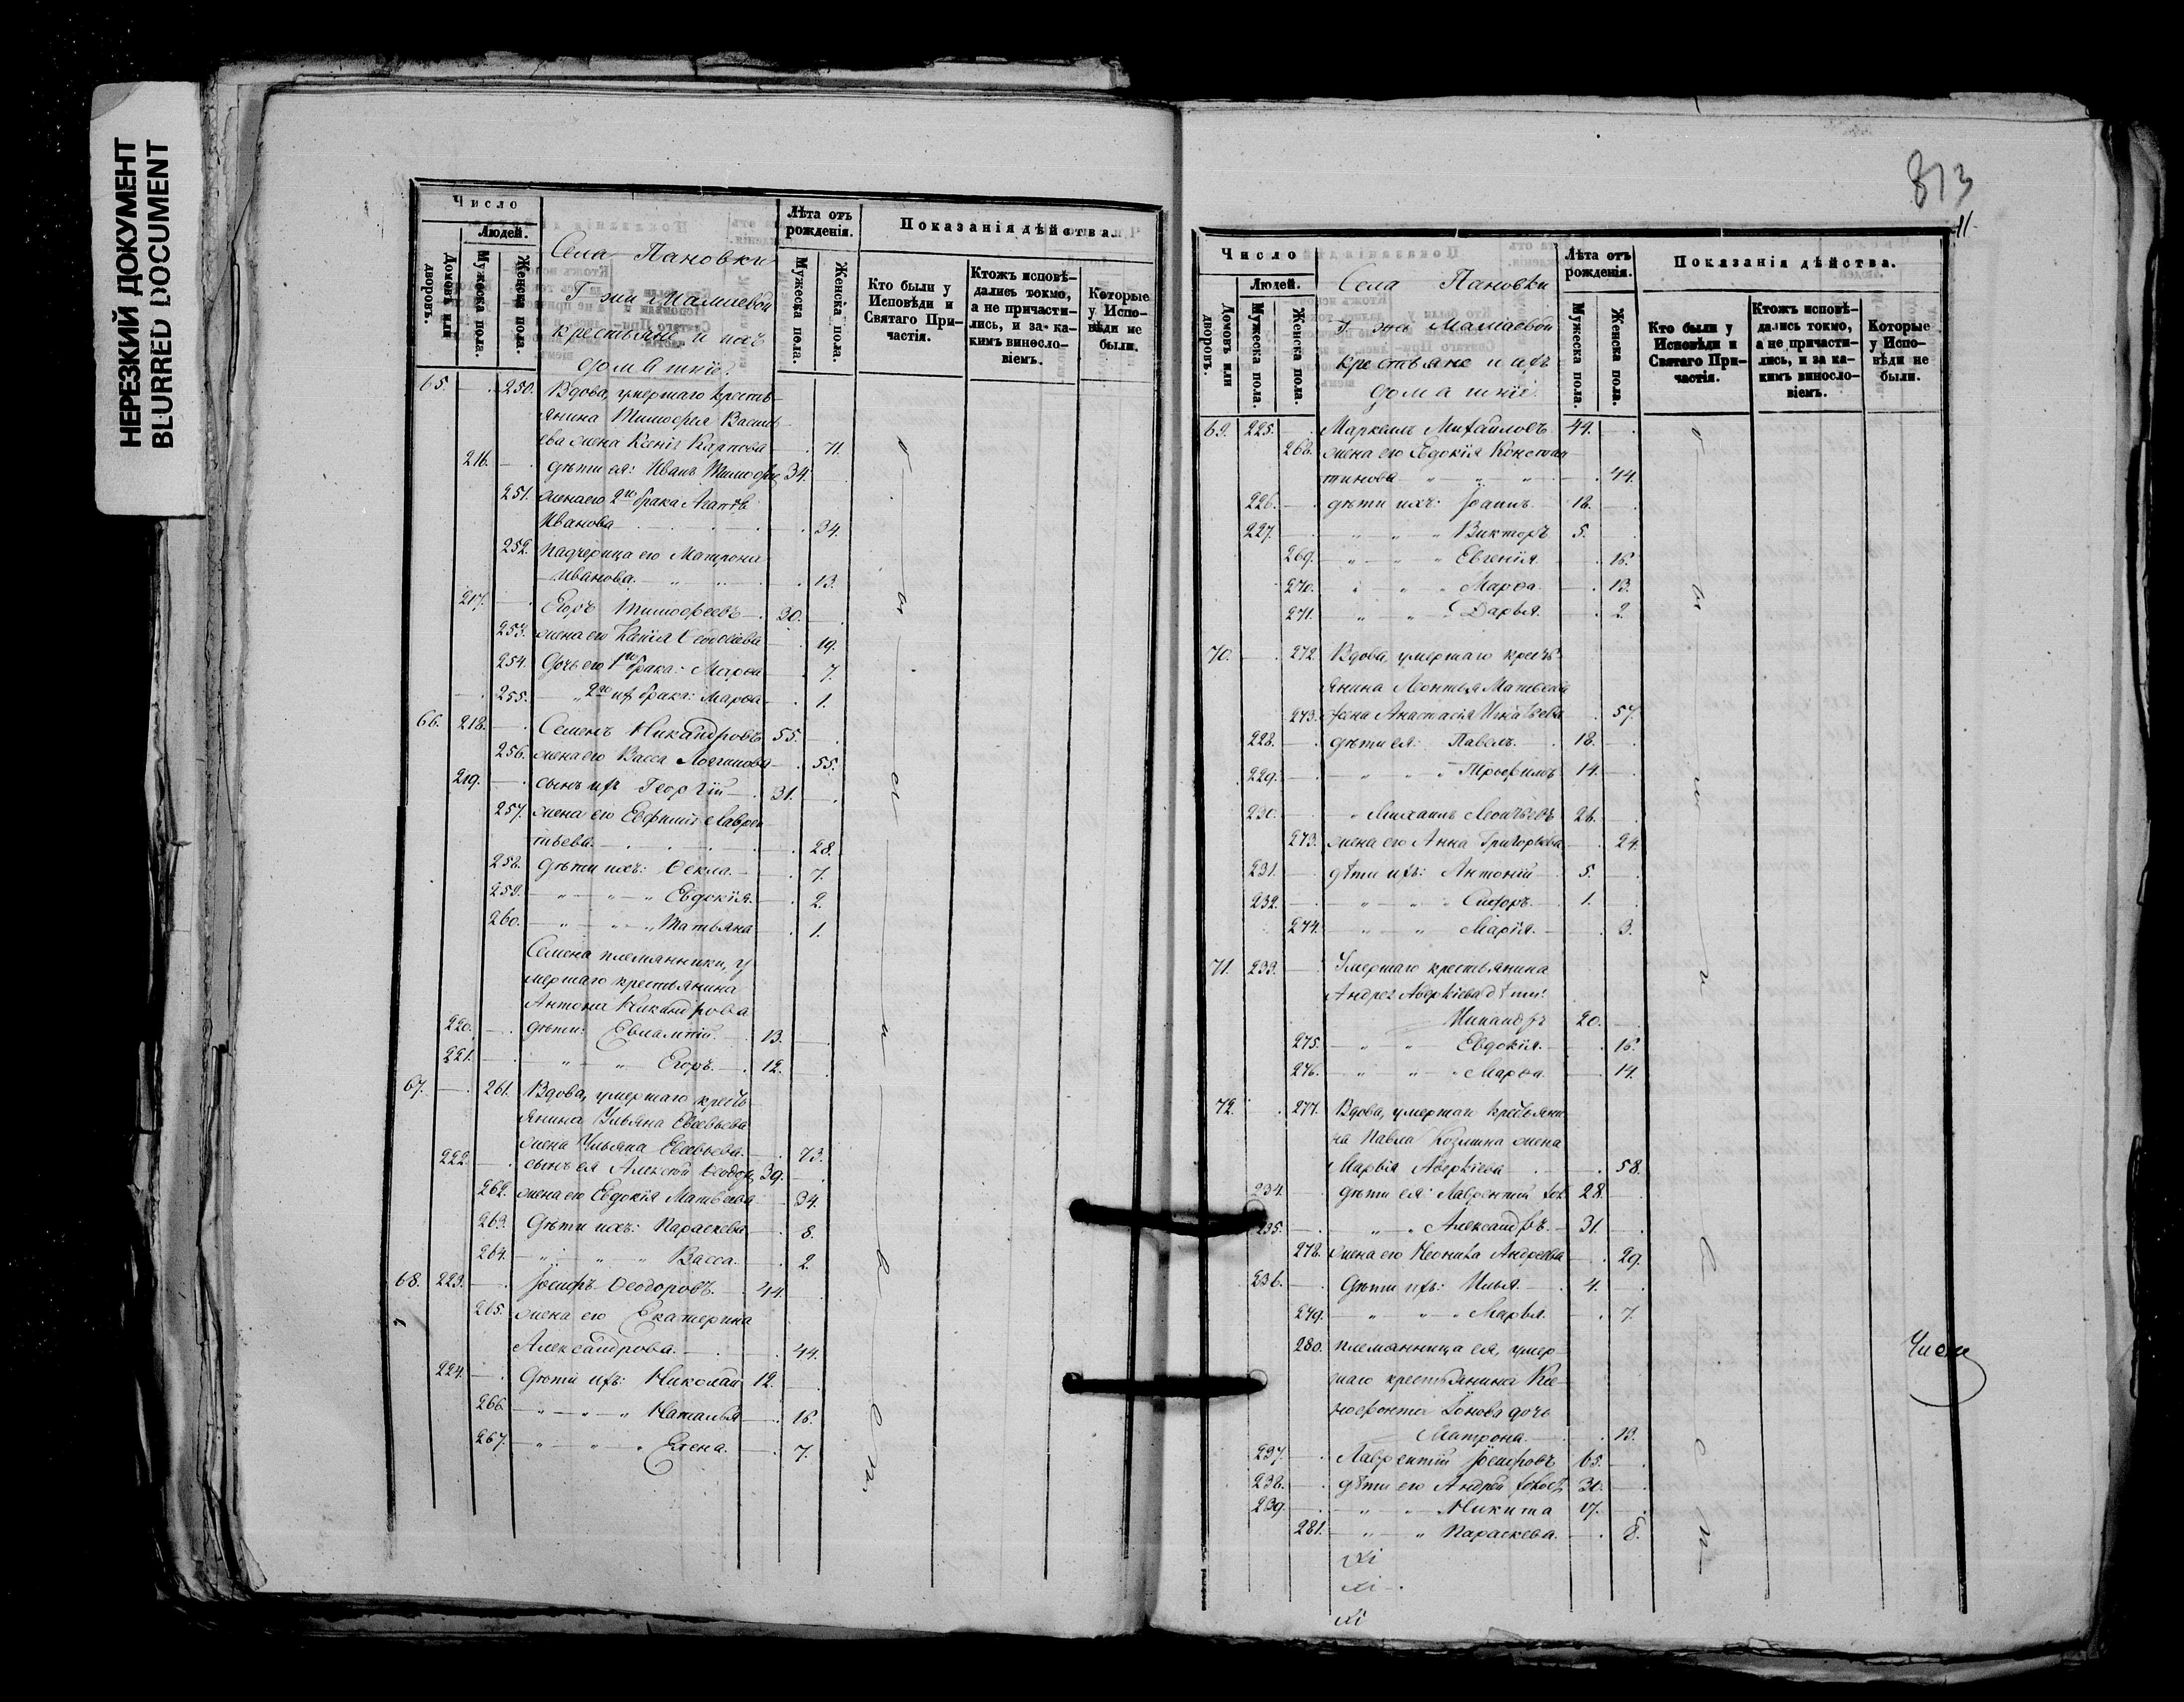 НЕРЕЗКИЙ ДОКУМЕНТ
BLURRED DOCUMENT
Число
Людей.
Домовъ или дворовъ.
Мужеска пола.
Женска пола.
Села Пановки
Г-жи
крестьяне и ихъ
домашніе.
Лѣта отъ рожденія.
Мужеска пола.
Женска пола.
Показанія дѣйства.
Кто были у Исповѣди и Святаго При-частія.
Ктожъ исповѣ-дались токмо, а не причасти-лись, и за ка-кимъ винословіемъ.
Которые у Испо-вѣди не были.
65. 250. Вдова, умершаго кресть-
янина Тимофея Василь
ева жена Ксенія Карпова 71.
216. дѣти ея: Иванъ Тимофе 34.
251. жена его 2го брака Агапія
Иванова 34.
252. падчерица его Матрона
Иванова. 13.
217. Егоръ Тимофеевъ 30.
253. жена его Ксенія 19.
254. Дочь его 1го брака: Марѳа 7.
255. " 2го их брака: Марѳа 1.
66. 218. Семенъ Никандровъ 55.
256. жена его Васса Логгинова 55.
219. сынъ ихъ Георгій 31.
257. жена его Евфимія Лаврен
тьева. 28.
258. дѣти ихъ: Ѳекла. 7.
259. " " " Евдокія. 2.
260. " " " Татьяна 1.
Семена племянники, у
мершаго крестьянина
Антона Никандрова
220. дѣти: Евлампій. 13.
221. " " Егоръ. 12.
67. 261. Вдова, умершаго кресть
янина Ульяна Евсевьева
жена Ульяна Евсевьева. 73.
222. сынъ ея Алексѣй 39.
262. жена его Евдокія Матвѣева 34.
263. Дѣти ихъ: Параскева 8.
264. " " " Васса. 2.
68. 223. Іосифъ Ѳеодоровъ. 44.
265. жена его Екатерина
Александрова. 44.
224. Дѣти ихъ: Николай 12.
266. " " " Наталья 16.
267. " " " Елена. 7.
813
11.
Число
Людей.
Домовъ или дворовъ.
Мужеска пола.
Женска пола.
Села Пановки
Г-жи
крестьяне и ихъ
домашніе.
Лѣта отъ рожденія.
Мужеска пола.
Женска пола.
Показанія дѣйства.
Кто были у Исповѣди и Святаго При-частія.
Ктожъ исповѣ-дались токмо, а не причасти-лись, и за ка-кимъ винословіемъ.
Которые у Испо-вѣди не были.
69. 225. Маркеллъ Михайловъ 44.
268. жена его Евдокія Констан
тинова " " " 44.
226. дѣти ихъ: Іоаннъ 18.
227. " " " Викторъ 5.
269. " " " Евгенія. 16.
270. " " " Марѳа. 13.
271. " " " Дарья. 2.
70. 272. Вдова, умершаго кресть
янина Леонтья Матвѣева
273. жена Анастасія Игнатьева 57.
228. дѣти ея: Павелъ. 18.
229. " " " Трофимъ 14.
230. " Михаилъ Леонтьевъ 26.
273. жена его Анна Григорьева 24.
231. дѣти ихъ: Антоній 5.
232. " " " 1.
274. " " Марія. 3.
71. 233. Умершаго крестьянина
Андрея Аверкіева дѣти:
Никандръ 20.
275. " " Евдокія. 16.
276. " " " Марѳа. 14.
72. 277. Вдова, умершаго крестьяни
на Павла Козмина жена
Марья Аверкіева 58.
234. дѣти ея: Лаврентій хол 28.
235. " " Александръ. 31.
278. жена его Неонила Андреева 29.
236. Дѣти ихъ: Илья. 4.
279. " " " Марья. 7.
280. племянница ея, умер
шаго крестьянина Ксе-
нофонта дочь
Матрона. 13.
237. Лаврентій Іосифовъ 65.
238. дѣти его Андрей холост 30.
239. " " Никита 17.
281. " " Параскева. 8.